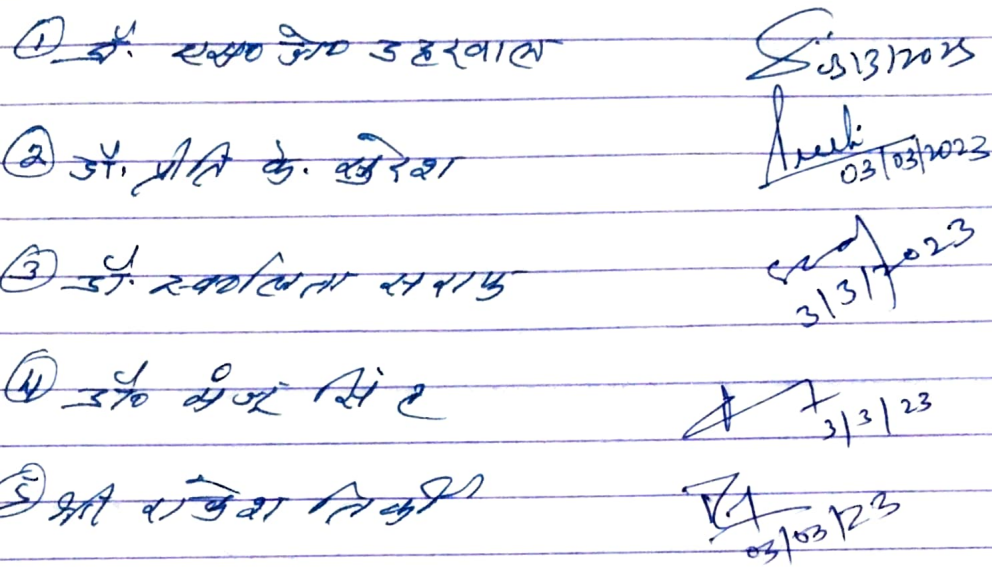 ① डॉ. एस० जे० डहरवाल 03/3/2023
② डॉ. प्रीति के. सुरेश 03/03/2023
③ डॉ. स्वर्णलता सराफ 3/3/2023
④ डॉ० मंजू सिंह 3/3/23
⑤ श्री राकेश तिर्की 03/03/23